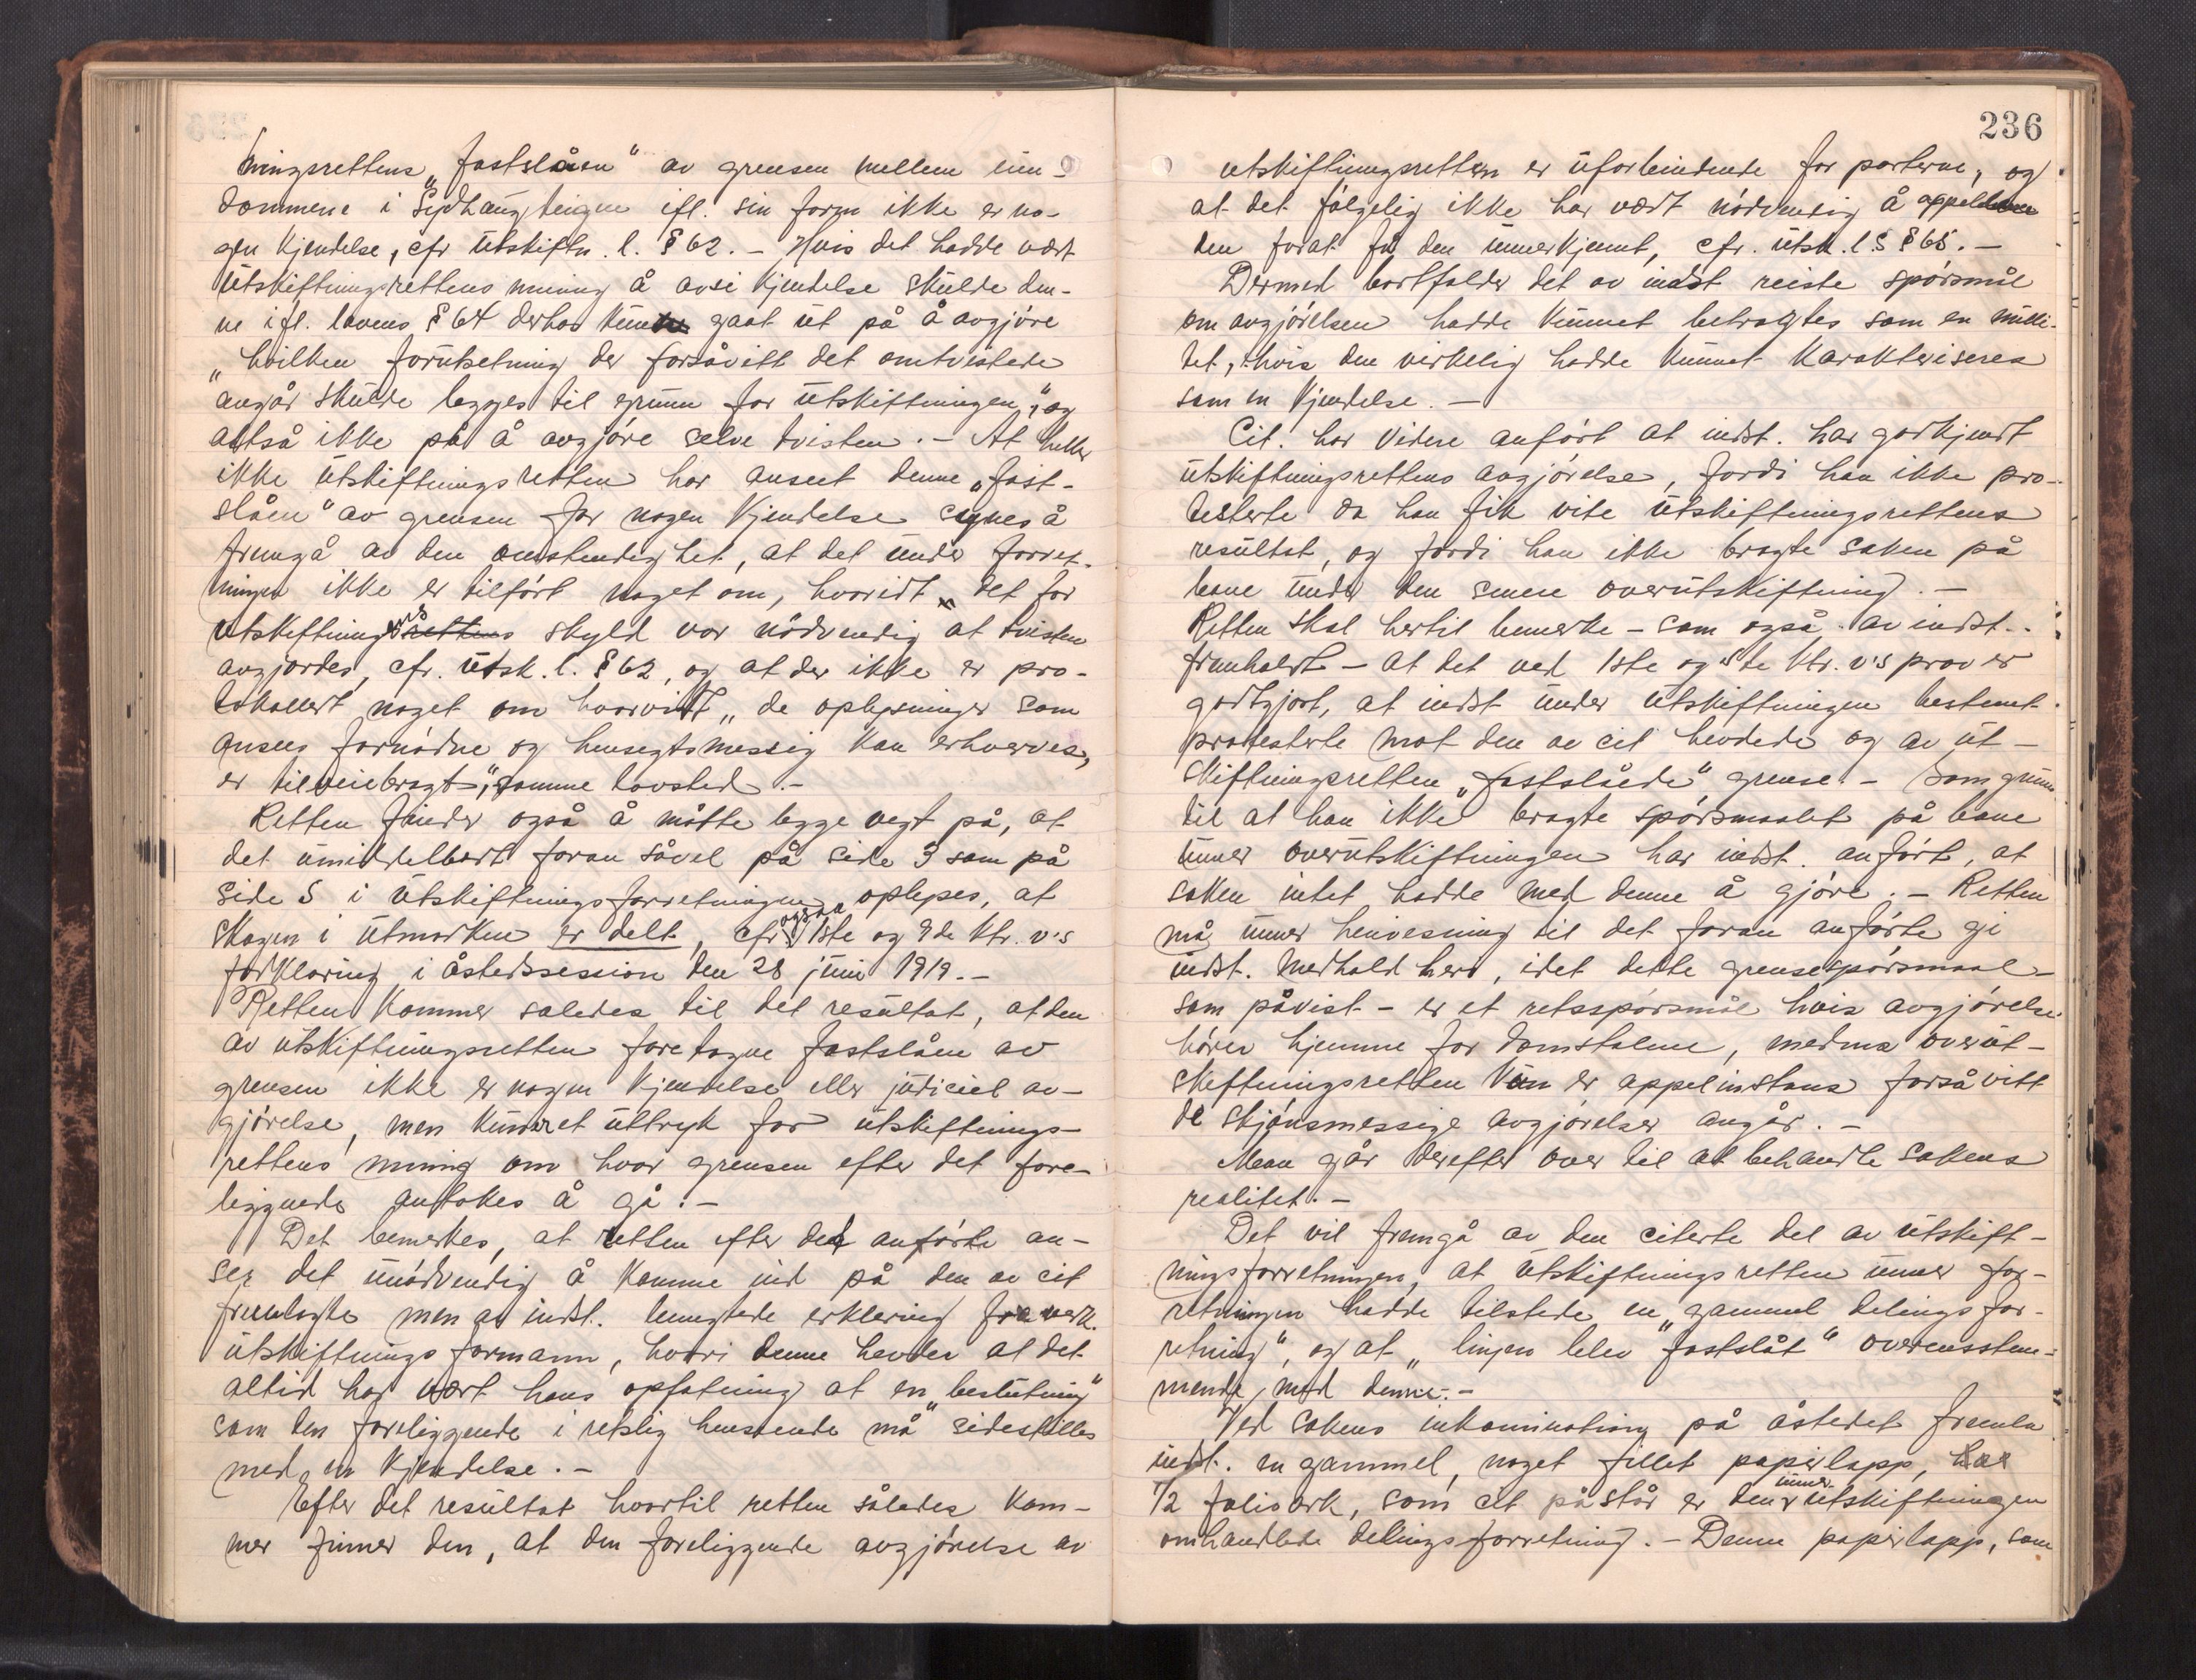 ningsrettens „fastslåen" av grensen mellem eien-
dommene i Sydhaugteigen ifl. sin form ikke er no-
gen kjendelse, cfr utskiftn. l. § 62. – Hvis det hadde vært
utskiftningsrettens mening å avsi kjendelse skulde den-
ne ifl. lovens § 64 derhos kun gaat ut på å avgjøre
„hvilken forutsetning der forsåvitt det omtvistede
angår skulde legges til grunn for utskiftningen," og
altså ikke på å avgjøre selve tvisten. – At heller
ikke utskiftningsretten har anseet denne „fast-
slåen" av grensen for nogen kjendelse synes å
fremgå av den omstendighet, at det under forret-
ningen ikke er tilført noget om, hvorvidt det for
utskiftningens skyld var nødvendig at tvisten
avgjordes, cfr. utsk. l. § 62, og at der ikke er pro-
tokollert noget om hvorvidt „de oplysninger som
ansees fornødne og hensigtsmessig kan erhverves,
er tilveiebragt", samme lovsted. –
Retten finder også å måtte legge vegt på, at
det umiddelbart foran såvel på side 3 som på
side 5 i utskiftningsforretningen oplyses, at
skogen i utmarken er delt, cfr ogsaa 1ste og 2de ktr. v's
forklaring i åstedssession den 28 juni 1919. –
Retten kommer saledes til det resultat, at den
av utskiftningsretten foretagne fastslåen av
grensen ikke er nogen kjendelse eller judiciel av-
gjørelse, men kun et uttryk for utskiftnings-
rettens mening om hvor grensen efter det fore-
liggende antokes å gå. –
Det bemerkes, at retten efter det anførte an-
ser det unødvendig å komme ind på den av cit
fremlagte men av indst. benegtede erklering fra
utskiftningsformann, hvori denne hevder at det
altid har vært hans opfatning at en „beslutning"
som den foreliggende i retslig henseende må „sidestilles
med en kjendelse. –
Efter det resultat hvortil retten således kom-
mer finner den, at den foreliggende avgjørelse av
236
utskiftningsretten er uforbindende for parterne, og
at det følgelig ikke har vært nødvendig å appellere
den forat få den underkjennt, cfr. utsk. l.s § 65. –
Dermed bortfalder det av indst reiste spørsmål
om avgjørelsen hadde kunnet betragtes som en nulli-
tet, hvis den virkelig hadde kunnet karakteriseres
som en kjendelse. –
Cit. har videre anført at indst. har godkjendt
utskiftningsrettens avgjørelse, fordi han ikke pro-
testerte da han fik vite utskiftningsrettens
resultat, og fordi han ikke bragte saken på
bane under den senere overutskiftning. –
Retten skal hertil bemerke – som også av indst.
fremholdt – at det ved 1ste og 5te ktr. v's prov er
godtgjort, at indst under utskiftningen bestemt
protesterte mot den av cit hevdede og av ut-
skiftningsretten „fastslåede" grense. – Som grunn
til at han ikke bragte spørsmaalet på bane
under overutskiftningen har indst. anført, at
saken intet hadde med denne å gjøre. – Retten
må under henvisning til det foran anførte gi
indst. medhold heri, idet dette grensespørsmaal –
som påvist – er et retsspørsmål hvis avgjørelse
hører hjemme for domstolene, medens overut-
skiftningsretten kun er appelinstans forsåvitt
de skjønsmessige avgjørelser angår. –
Man går derefter over til at behandle sakens
realitet. –
Det vil fremgå av den citerte del av utskift-
ningsforretningen, at utskiftningsretten under for-
retningen hadde tilstede en „gammel delingsfor-
retning", og at „linjen blev fastslåt" overensstem-
mende med denne. –
Ved sakens inkamination på åstedet fremla
indst. en gammel, noget fillet papirlapp,
1/2 folioark, som cit påstår er den under utskiftningen
omhandlede delingsforretning. – Denne papirlapp, som